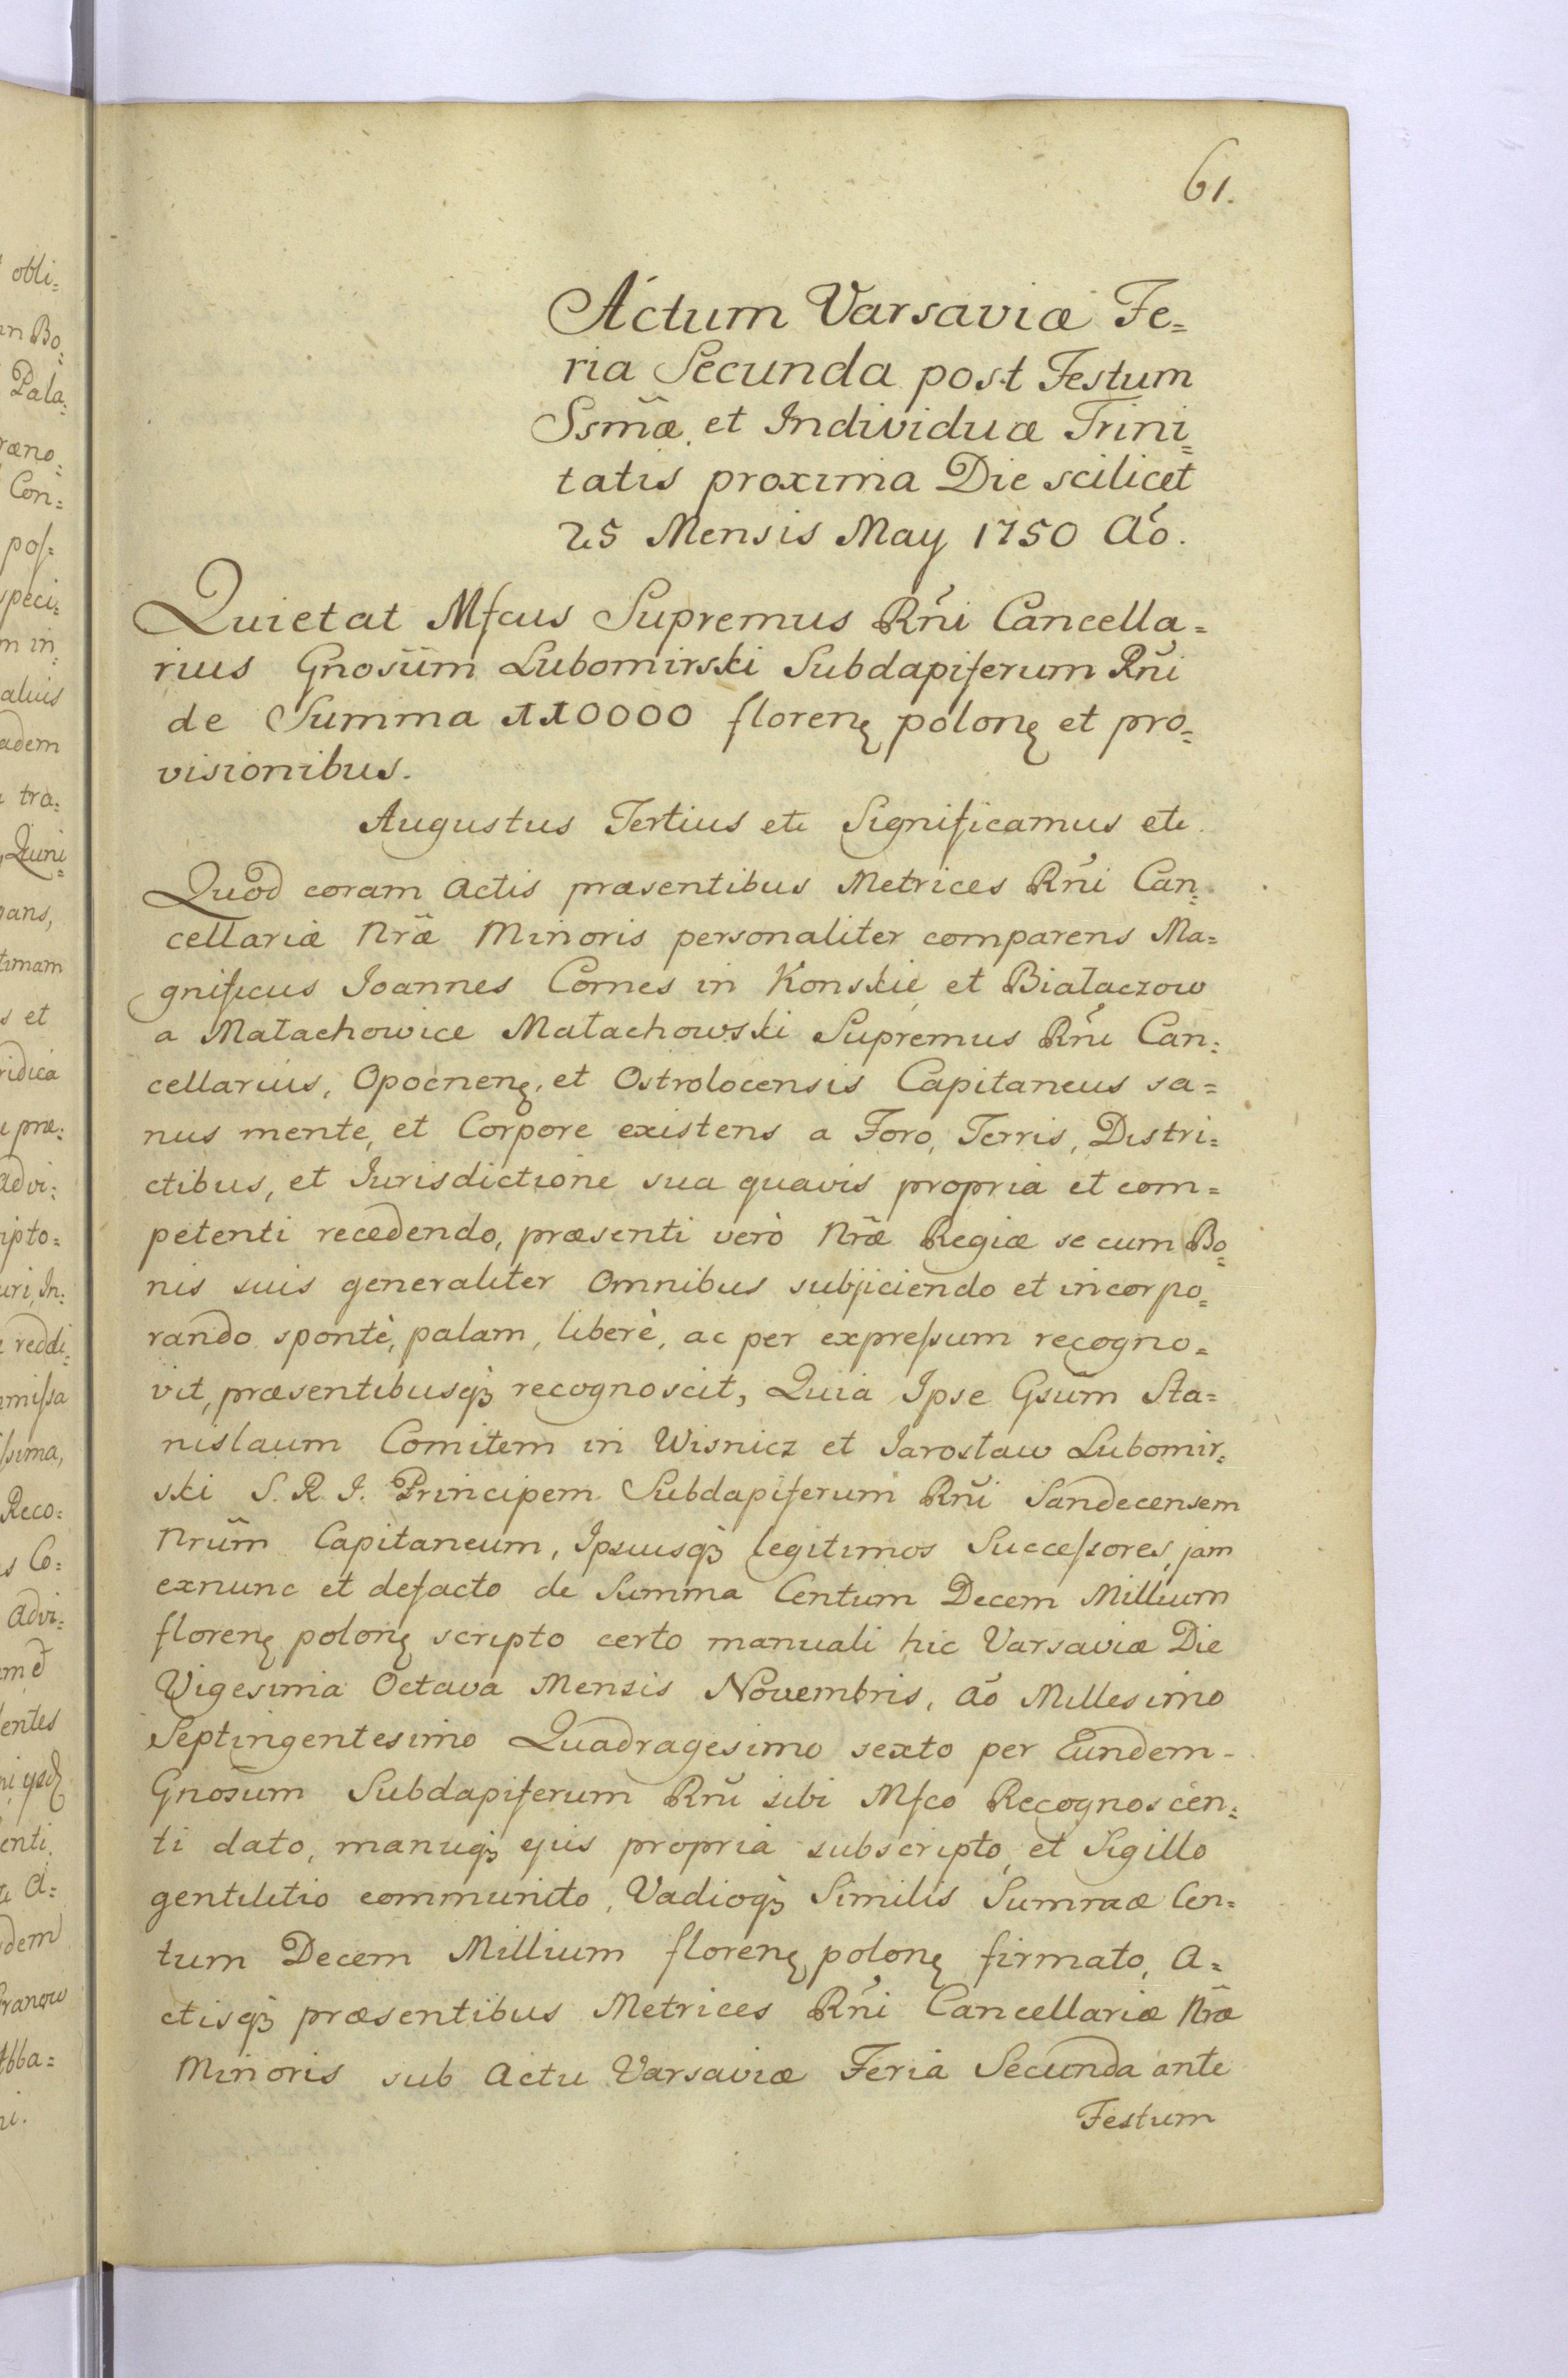 61.
Actum Varsaviæ Fe=
ria Secunda post Festum
Ssm̃æ et Individuæ Trini=
tatis proxima Die scilicet
25 Mensis May 1750 Aõ.
Quietat Mfcus Supremus Rñi Cancella=
rius Gnosũm Lubomirski Subdapiferum Rñi
de Summa 110000 florenꝫ polonꝫ et pro=
visionibus.
Augustus Tertius etc Significamus etc.
Quod coram Actis præsentibus Metrices Rñi Can=
cellariæ Nrã̃e Minoris personaliter comparens Ma=
gnificus Joannes Comes in Konskie et Białaczow
a Małachowice Małachowski Supremus Rñi Can=
cellarius, Opocnenꝫ, et Ostrolocensis Capitaneus sa=
nus mente, et Corpore existens a Foro, Terris, Distri=
ctibus, et Jurisdictione sua quavis propria et com=
petenti recedendo, præsenti verò Nræ̃ Regiæ se cum Bo=
nis suis generaliter Omnibus subjiciendo et incorpo=
rando spontè, palam, liberè, ac per expreſsum recogno=
vit, præsentibusqꝫ recognoscit, Quia Ipse Gsũm Sta=
nislaum Comitem in Wisnicz et Jarosław Lubomir=
ski S. R. J. Principem Subdapiferum Rñi Sandecensem
Nrũm Capitaneum, Ipsiusqꝫ legitimos Succeſsores, jam
exnunc et defacto de Summa Centum Decem Millium
florenꝫ polonꝫ scripto certo manuali hic Varsaviæ Die
Vigesima Octava Mensis Novembris, Aõ Millesimo
Septingentesimo Quadragesimo sexto per Eundem
Gnosum Subdapiferum Rñi sibi Mfco Recognoscen=
ti dato, manuqꝫ ejus propria subscripto, et Sigillo
gentilitio communito, Vadioqꝫ Similis Summæ Cen=
tum Decem Millium florenꝫ polonꝫ firmato, A=
ctisqꝫ præsentibus Metrices Rñi Cancellariæ Nræ̃
Minoris sub Actu Varsaviæ Feria Secunda ante
Festum